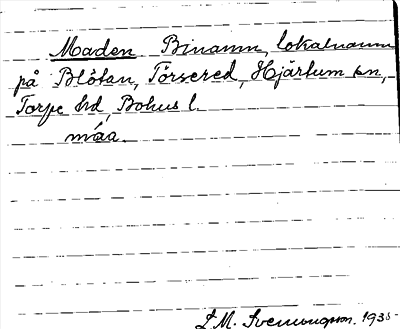 Maden Binamn, lokalnamn
på Blötan, Torsered, Hjärtum sn,
Torpe hd, Bohus l.
måa.
L. M. Svenungsson. 1935